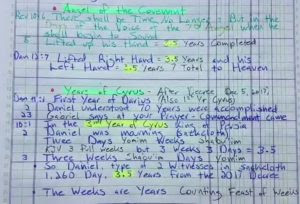 Angel of the Covenant
Rev 10:6 There shall be Time No Longer: But in the
the voice of the 7th Angel when he
shall begin to Sound
Lifted up his Hand = 3.5 Years Completed
Dan 12:7 Lifted Right Hand = 3.5 Years and his
Left Hand = 3.5 Years 7 Total to Heaven
Years of Cyrus - After Decree Dec 5, 2017
Dan 9:1 First Year of Darius (Also 1st Yr Cyrus)
2 Daniel understood 70 years were accomplished
23 Gabriel says at your Prayer - Commandment came
10:1 In the 3rd Year of Cyrus King of Persia
2 Daniel was mourning (sackcloth)
Three Weeks
KJV 3 Full Weeks but 3 Weeks 3 Days = 3.5
3 Three Weeks Shabu'im Days Yomim
So Daniel type of 2 Witnesses in Sackcloth
1,260 Day, 3.5 Years from the 2017 Decree
The Weeks are Years Counting Feast of Weeks